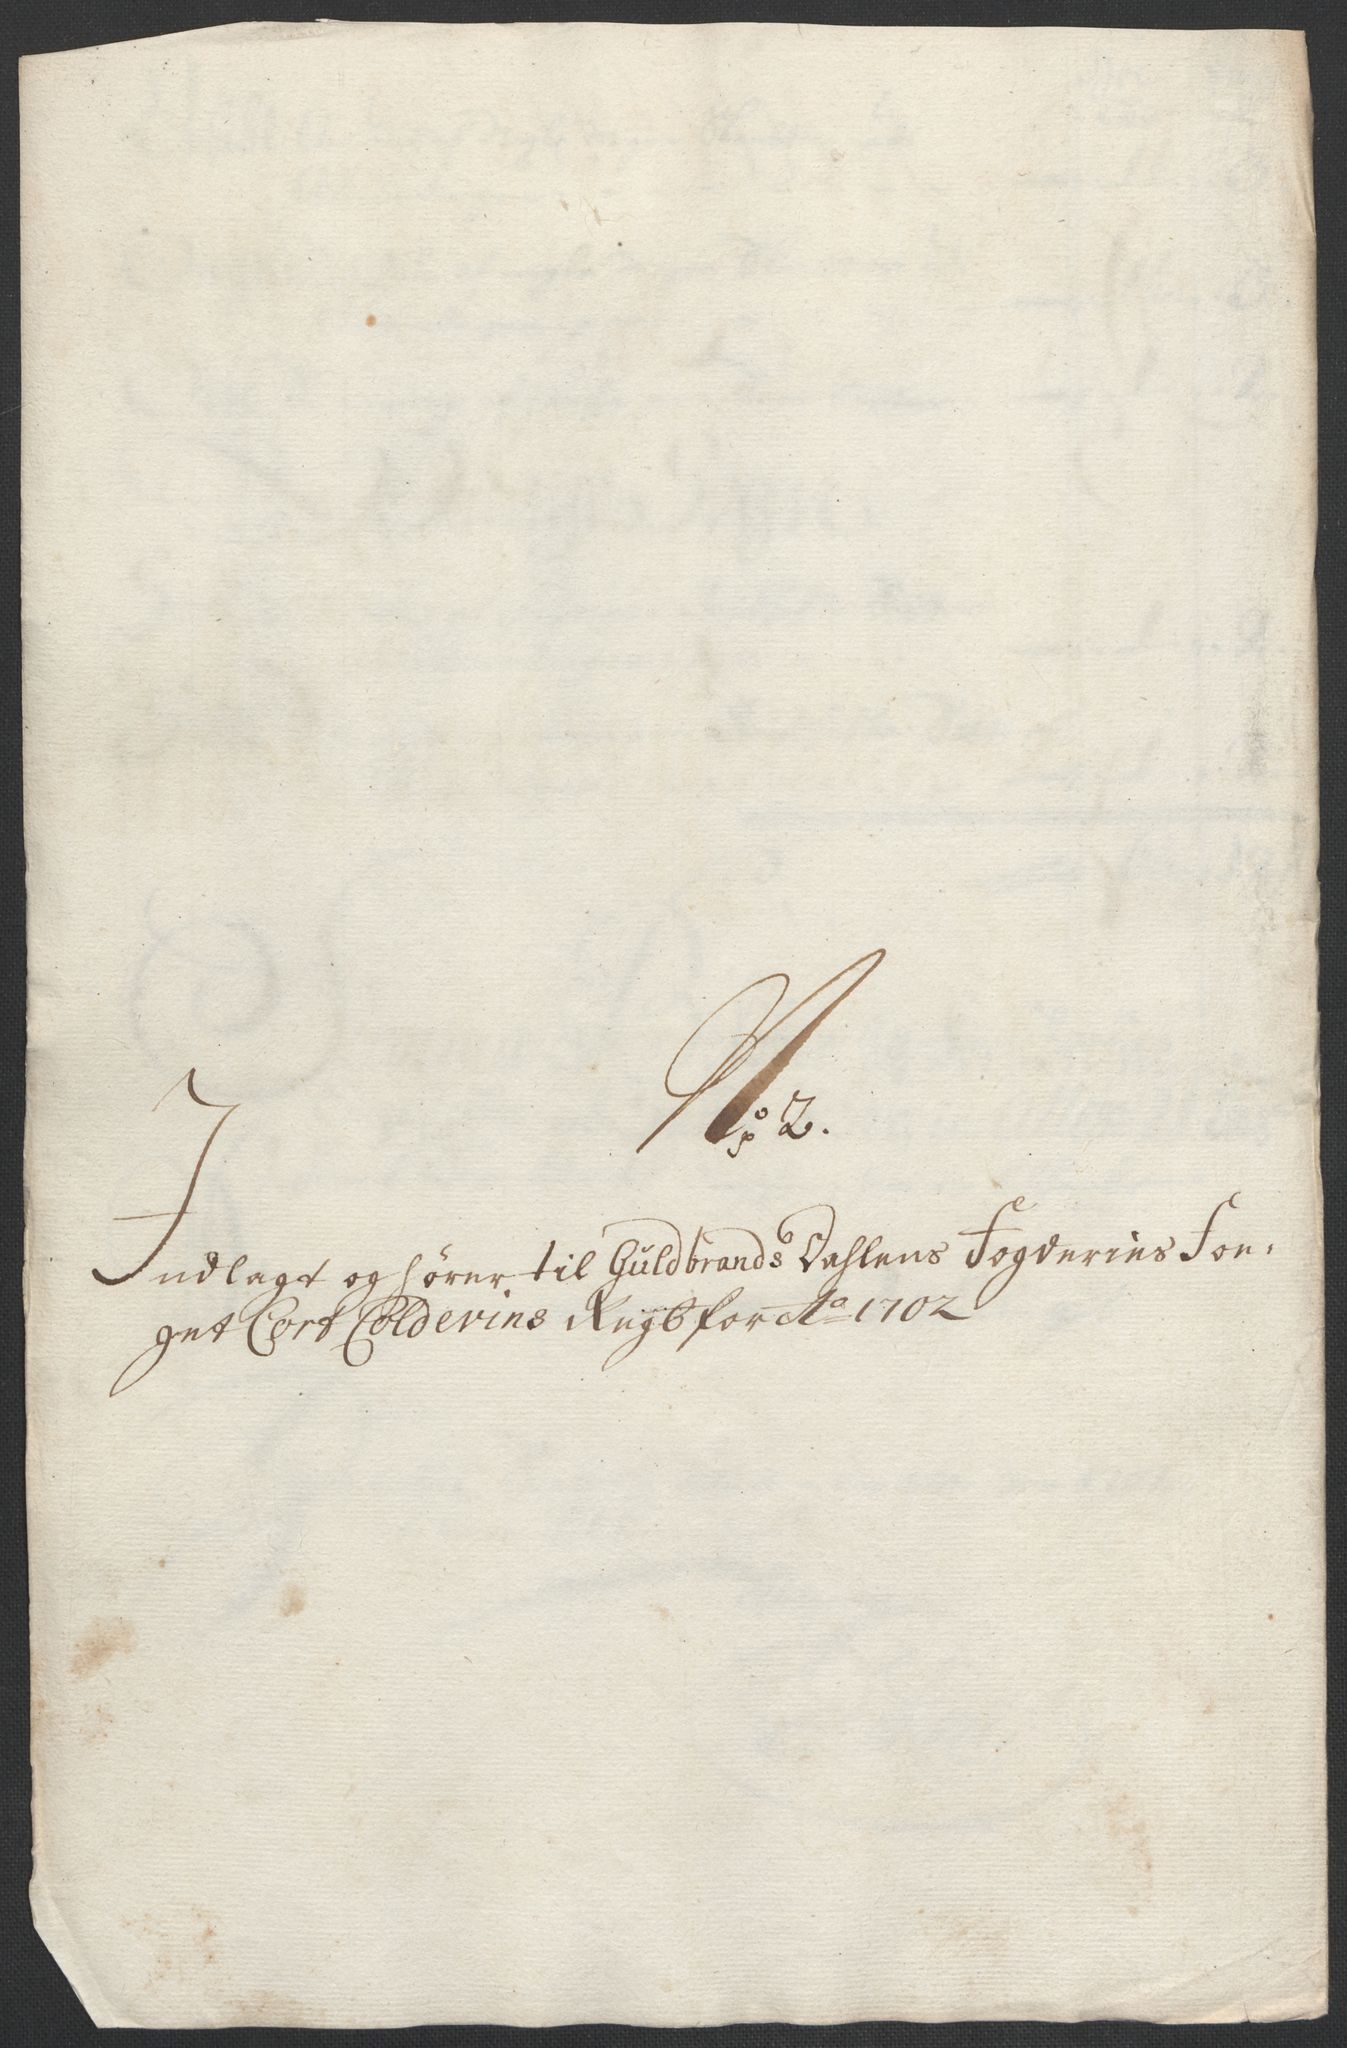 No 2.
Indlagt og hører til Guldbrands Dahlens Fogderies Fou-
get Cort Colderins Regsb for Ao 1702